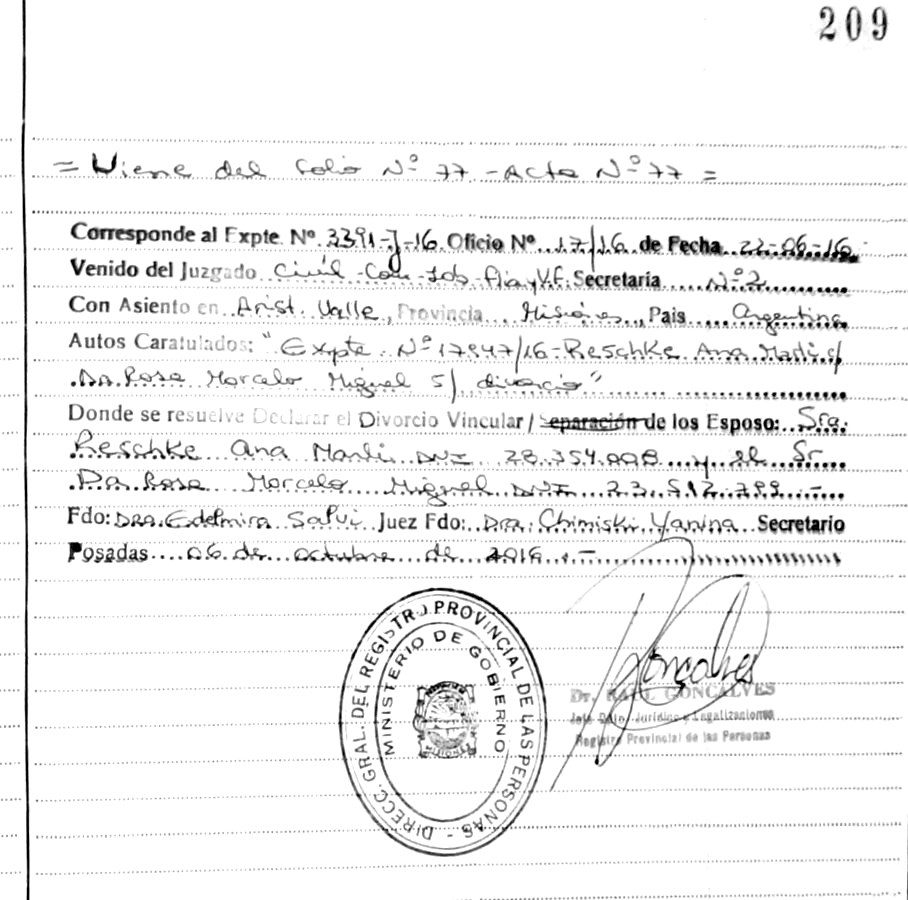 209
= Viene del Folio Nº 77 - Acta Nº 77 =
Corresponde al Expte. Nº 3391-J-16 Oficio Nº 17/16 de Fecha 22-06-16
Venido del Juzgado Civil-Com-Lab-Flia y V.F. Secretaria Nº 2
Con Asiento en Arist. Valle, Provincia Misiones, Pais Argentina
Autos Caratulados: "Expte. Nº 17847/16-Reschke Ana Marli c/
Da Rosa Marcelo Miguel s/ divorcio"
Donde se resuelve Declarar el Divorcio Vincular / Separación de los Esposo: Sra.
Reschke Ana Marli DNI 28.354.008 y el Sr
Da Rosa Marcelo Miguel DNI 23.512.799 -
Fdo: Dra. Edelmira Salvi Juez Fdo: Dra. Chimiski Yanina Secretario
Posadas 06 de octubre de 2016.-
DIRECC. GRAL. DEL REGISTRO PROVINCIAL DE LAS PERSONAS -
MINISTERIO DE GOBIERNO
MISIONES
Gonçalves
Dr. RAUL GONCALVES
Jefe Dpto. Jurídico y Legalizaciones
Registro Provincial de las Personas